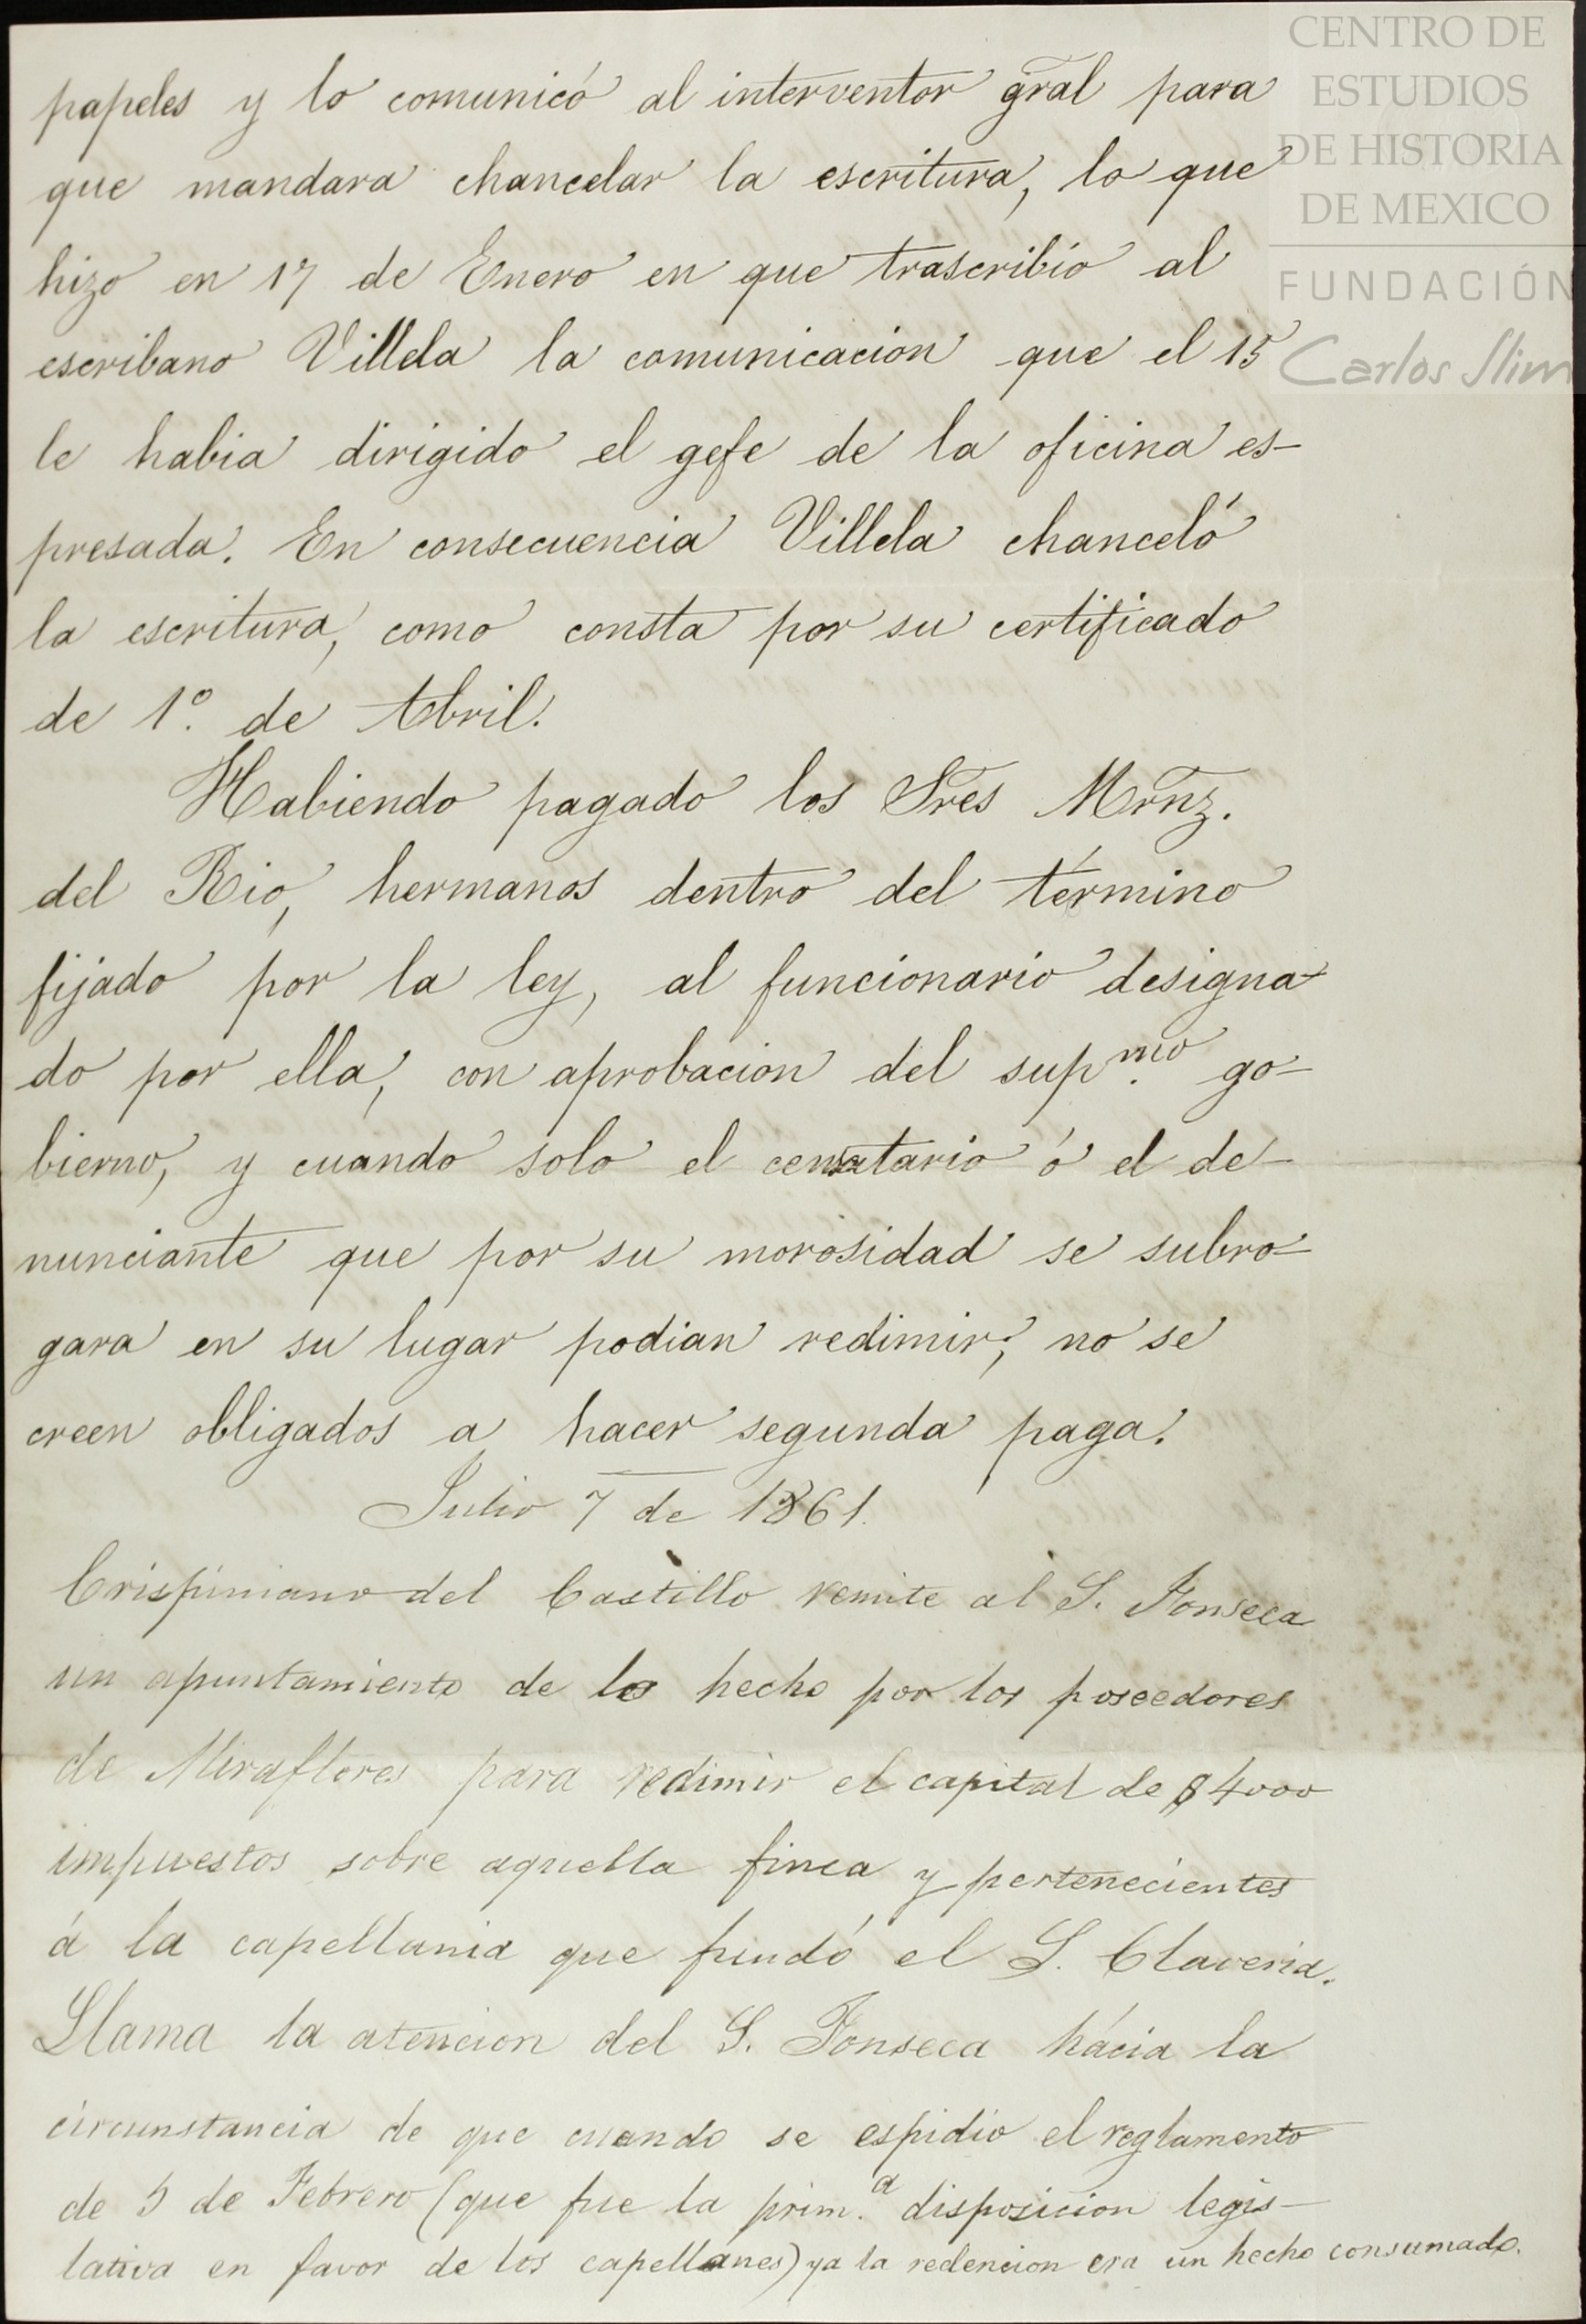 CENTRO DE
ESTUDIOS
DE HISTORIA
DE MEXICO
FUNDACIÓN
Carlos Slim
papeles y lo comunicó al interventor gral para
que mandara chancelar la escritura, lo que
hizo en 17 de Enero en que trascribió al
escribano Villela la comunicacion que el 15
le habia dirigido el gefe de la oficina es-
presada. En consecuencia Villela chanceló
la escritura, como consta por su certificado
de 1º. de Abril.
Habiendo pagado los Sres Mrnz.
del Rio, hermanos dentro del término
fijado por la ley, al funcionario designa-
do por ella, con aprobacion del sup.mo go-
bierno, y cuando solo el censatario ó el de-
nunciante que por su morosidad se subro-
gara en su lugar podian redimir; no se
creen obligados a hacer segunda paga.
Julio 7 de 1861.
Crispiniano del Castillo remite al S. Fonseca
un apuntamiento de lo hecho por los poseedores
de Miraflores para redimir el capital de $4000
impuestos sobre aquella finca y pertenecientes
á la capellania que fundó el S. Claveria.
Llama la atencion del S. Fonseca hácia la
circunstancia de que cuando se espidio el reglamento
de 5 de Febrero (que fue la prim.a disposicion legis-
lativa en favor de los capellanes) ya la redencion era un hecho consumado.